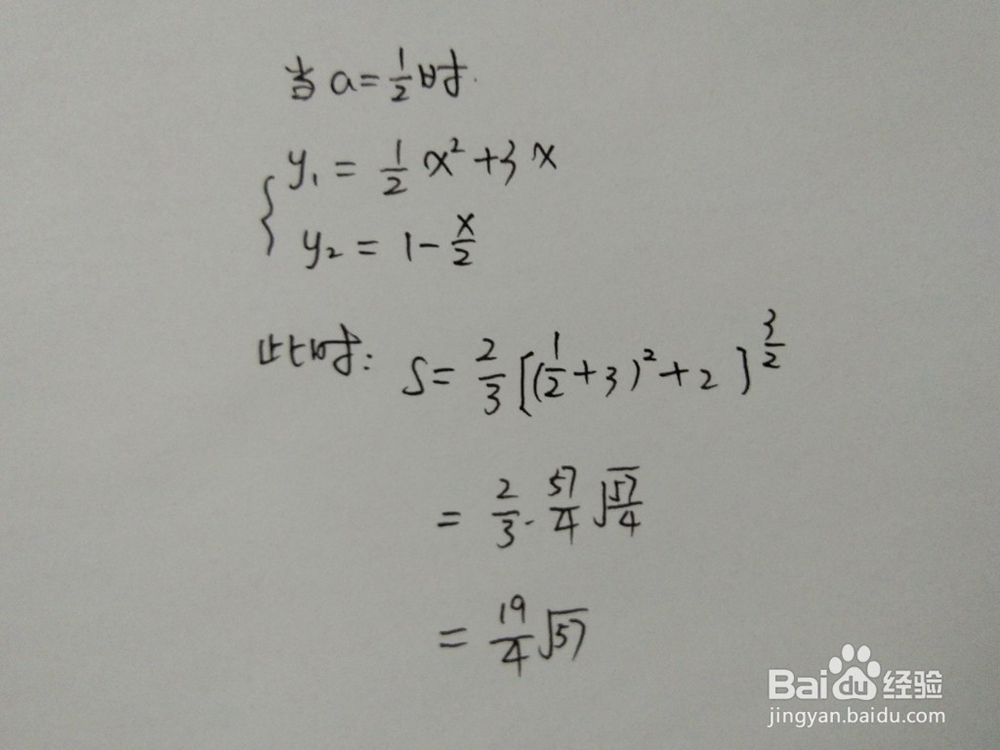 当 a=1/2时.
{ y₁ = 1/2 x² + 3x
y₂ = 1 - x/2
此时: S = 2/3 [(1/2+3)²+2]^(3/2)
= 2/3 · 57/4 √(57/4)
= 19/4 √57
Baidu 经验
jingyan.baidu.com